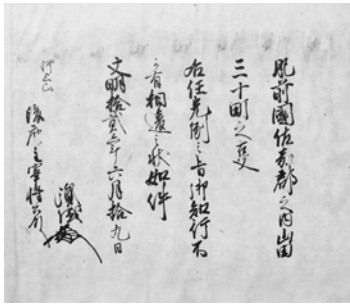 肥前國佐嘉郡之内山田
三十町之事
右任先例之旨御知行不
可有相違之状如件
文明拾貳年六月拾九日
胤
河上山
座主